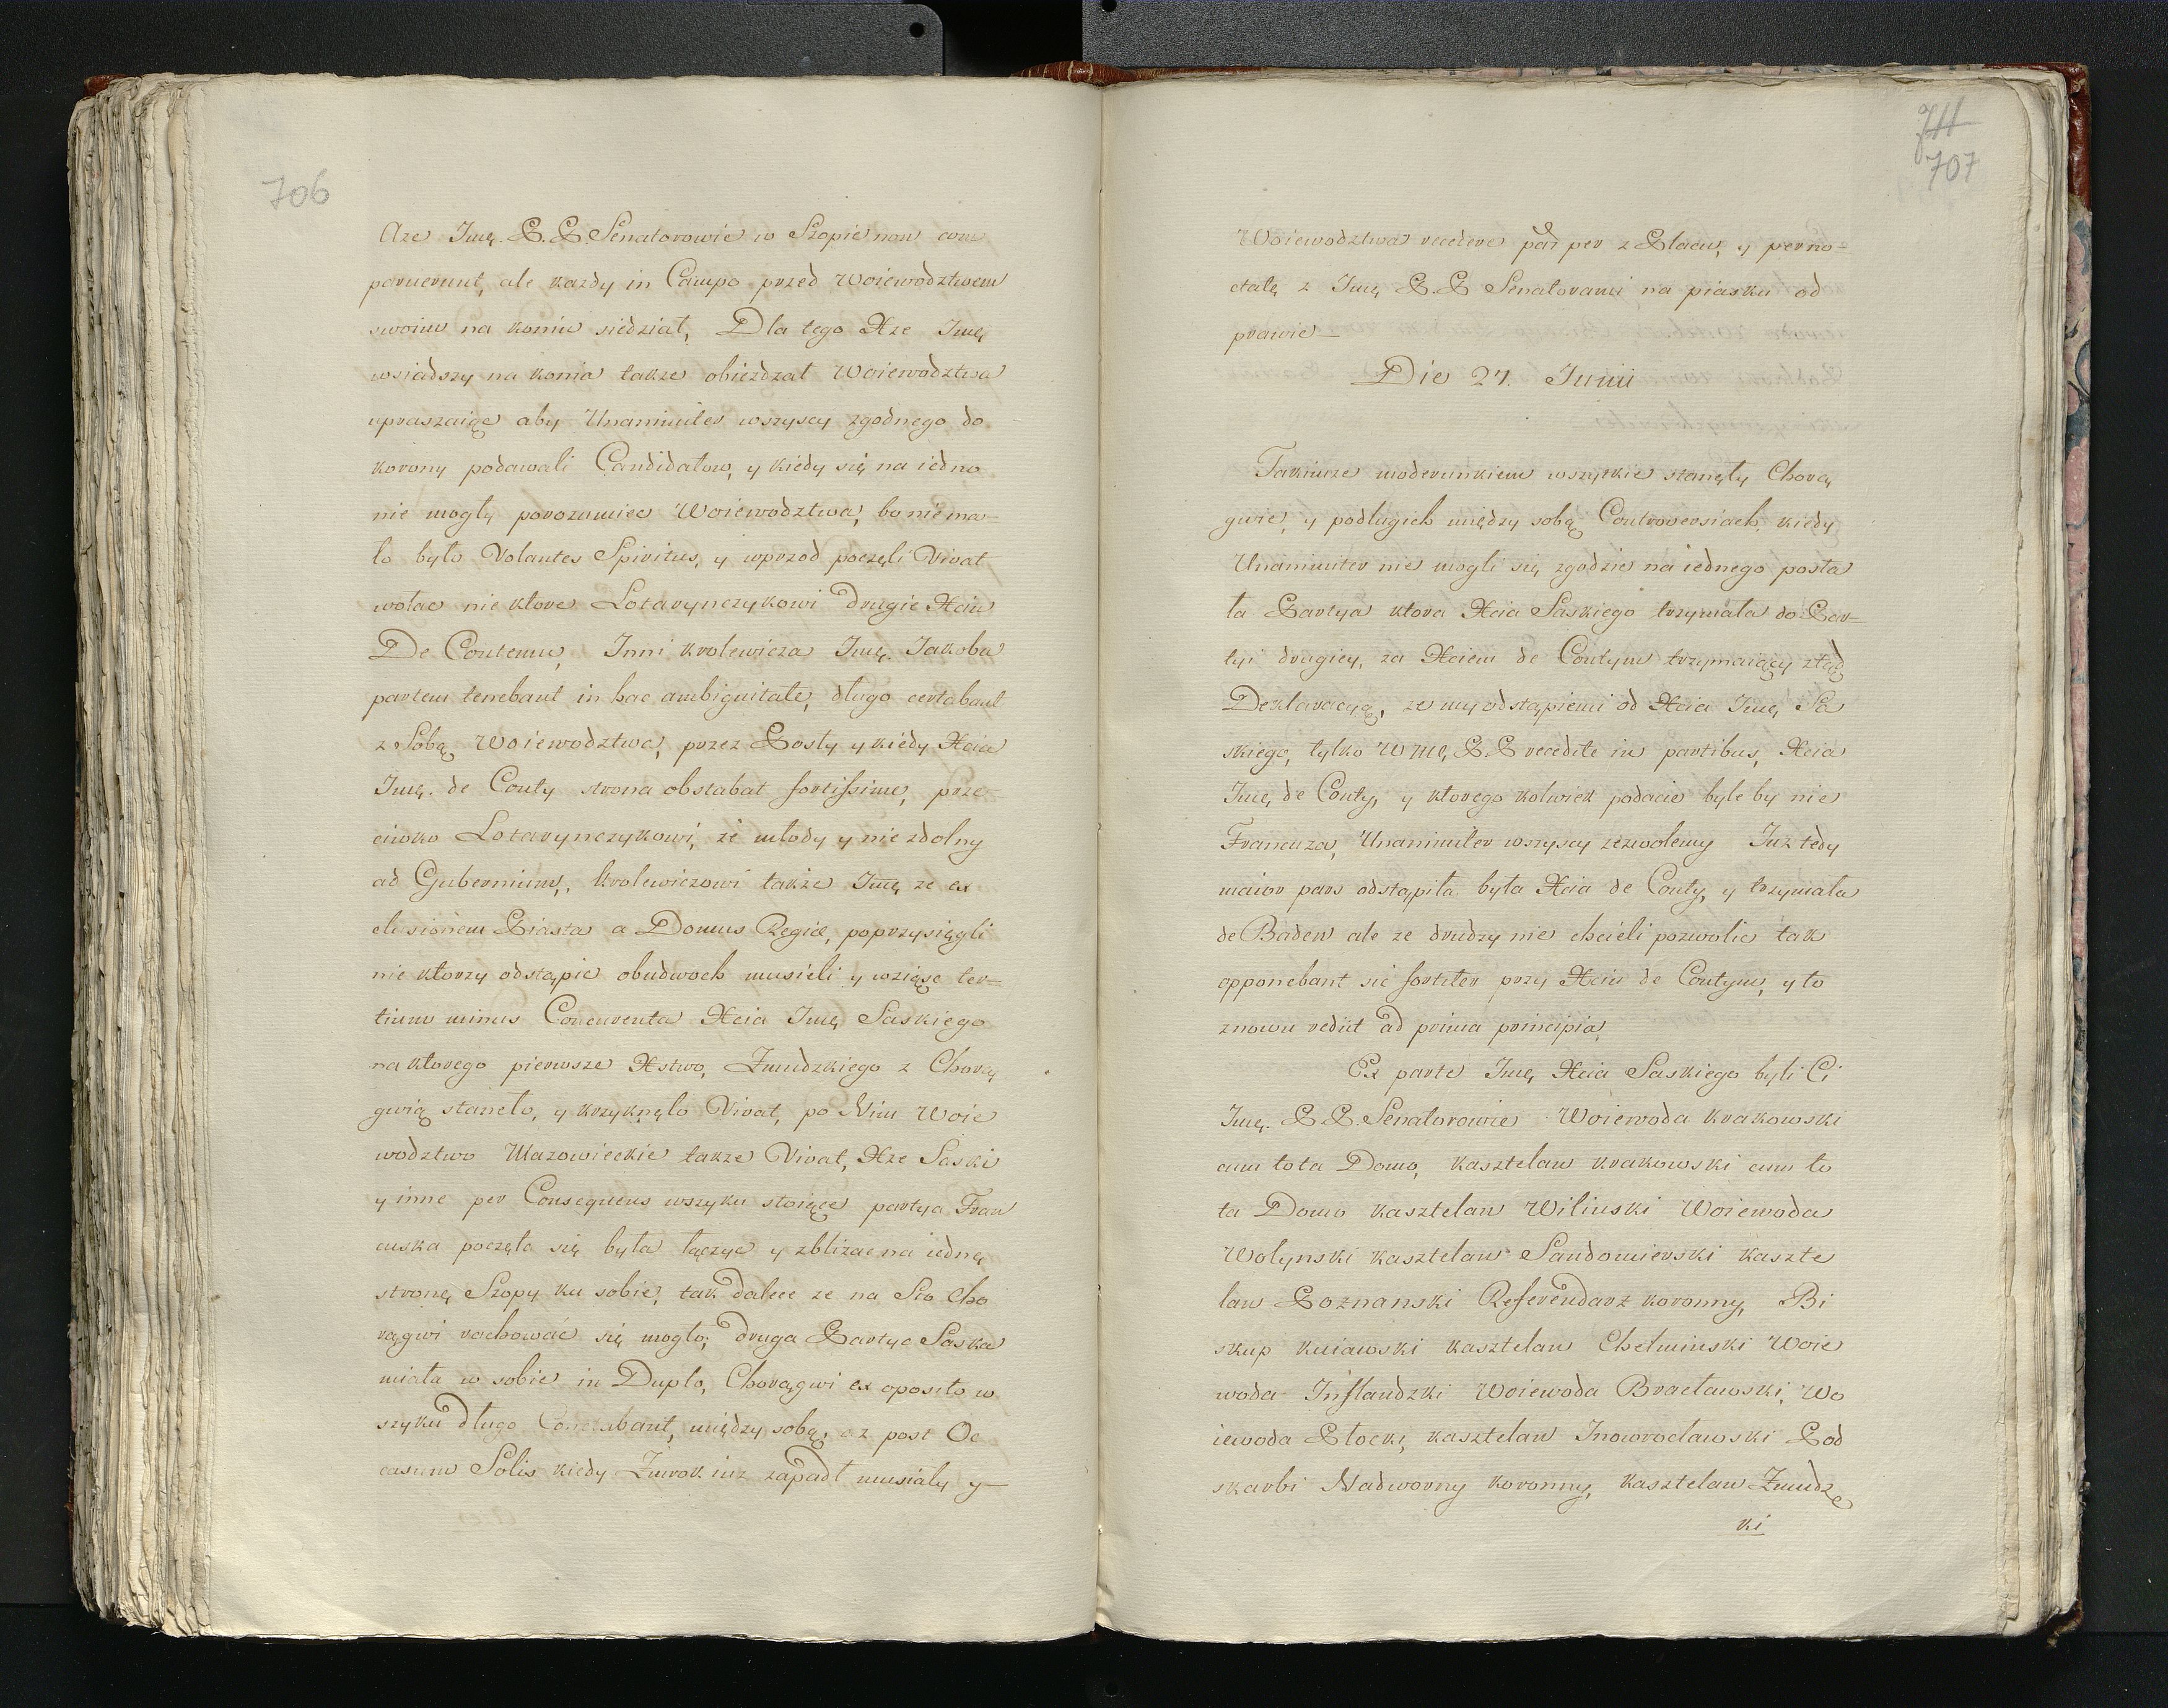 706
Aze Jmę. P. P. Senatorowie w Szopie non com
paruerunt, ale kazdy in Campo przed Woiewodztwem
swoim na koniu siedział, Dla tego Xże Jmę
wsiadszy na konia takze obiezdzał Woiewodztwa
upraszaiąc aby Unanimiter wszyscy zgodnego do
korony podawali Candidatow, y kiedy się na iedno
nie mogły porozumiec Woiewodztwa, bo niema-
ło było Volantes Spiritus, y wprzod poczęli Vivat
wołac nie ktore Lotarynczykowi drugie Xciu
De Contemu, Inni krolewicza Jmę. Jakoba
partem tenebant in hac ambiguitate, długo certabant
z Sobą Woiewodztwa, przez Posły y kiedy Xcia
Jmę. de Conty strona obstabat fortissime, prze-
ciwko Lotarynczykowi, że młody y nie zdolny
ad Gubernium, krolewiczowi także Jmę ze ex
clusionem Piasta a Domus Regiæ, poprzysięgli
nie ktorzy odstąpic obudwoch musieli y wziąsc ter-
tium minus Concurenta Xcia Jmę Saskiego
na ktorego pierwsze Xstwo, Zmudzkiego z Chorą
gwią stanęło, y krzyknęło Vivat, po Nim Woie
wodztwo Mazowieckie takze Vivat, Xże Saski
y inne per Consequens wszyku stoiące partya Fran
cuska poczęła się była łączyc y zblizac na iednę
stronę Szopy ku sobie, tak dalece ze na Sto Cho
rągwi rachować się mogło; druga Partya Saska
miała w sobie in Duplo, Chorągwi ex oposito w
szyku długo Conc..bant, między sobą, az post Oc
casum Solis kiedy Zmrok iuz zapadł musiały y
711
707
Woiewodztwa recedere par per z Placu, y perno-
ctatę z Jmę P. P. Senatorami na piasku od
prawic
Die 27. Junii
Takimze moderunkiem wszytkie stanęły Chorą
gwie, y podługich między sobą Controversiach, kiedy
Unanimiter nie mogli się zgodzic na iednego posła
ła Partya ktora Xcia Saskiego trzymała do Par-
tyi drugiey, za Xciem de Contym trzymaiącey ztąd
Deklaracyą, ze my odstąpiemi od Xcia Jmę Sa
skiego, tylko WMę, P. P. recedite in partibus, Xcia
Jmę, de Conty, y ktorego kolwiek podacie byle by nie
Francuza, Unanimiter wszyscy zezwolemy Iuz tedy
maior pars odstąpiła była Xcia de Conty, y trzymała
de Baden ale ze drudzy nie chcieli pozwolic tak
opponebant sie fortiter przy Xciu de Contym, y to
znowu rediit ad prima principia,
Ex parte Jmę, Xcia Saskiego byli Ci
Jmę. P. P. Senatorowie Woiewoda krakowski
cum tota Domo, kasztelan krakowski cum to
ta Domo kasztelan Wilinski Woiewoda
Wołynski kasztelan Sandomierski kaszte
lan Poznanski Referendarz koronny, Bi
skup kuiawski kasztelan Chełminski Woie
woda Inflandzki Woiewoda Bracławski, Wo
iewoda Płocki, kasztelan Inowrocławski Pod
skarbi Nadworny koronny, kasztelan Zmudz
ki